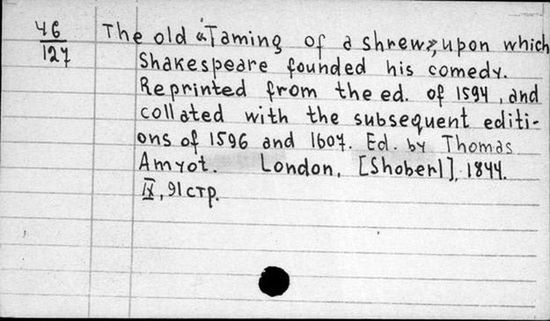 46 The old "Taming of a shrew", upon which
127 Shakespeare founded his comedy.
Reprinted from the ed. of 1594, and
collated with the subsequent editi-
ons of 1596 and 1607. Ed. by Thomas
Amyot. London, [Shoberl], 1844.
IX, 91 стр.